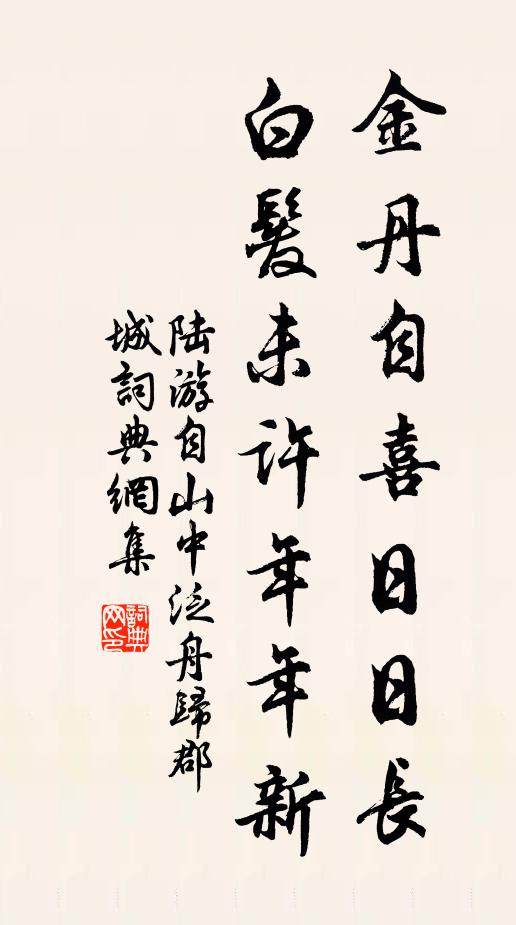 金丹自喜日日長
白髮未許年年新
陆游自山中泛舟歸郡
城詞典網集
詞典
网印